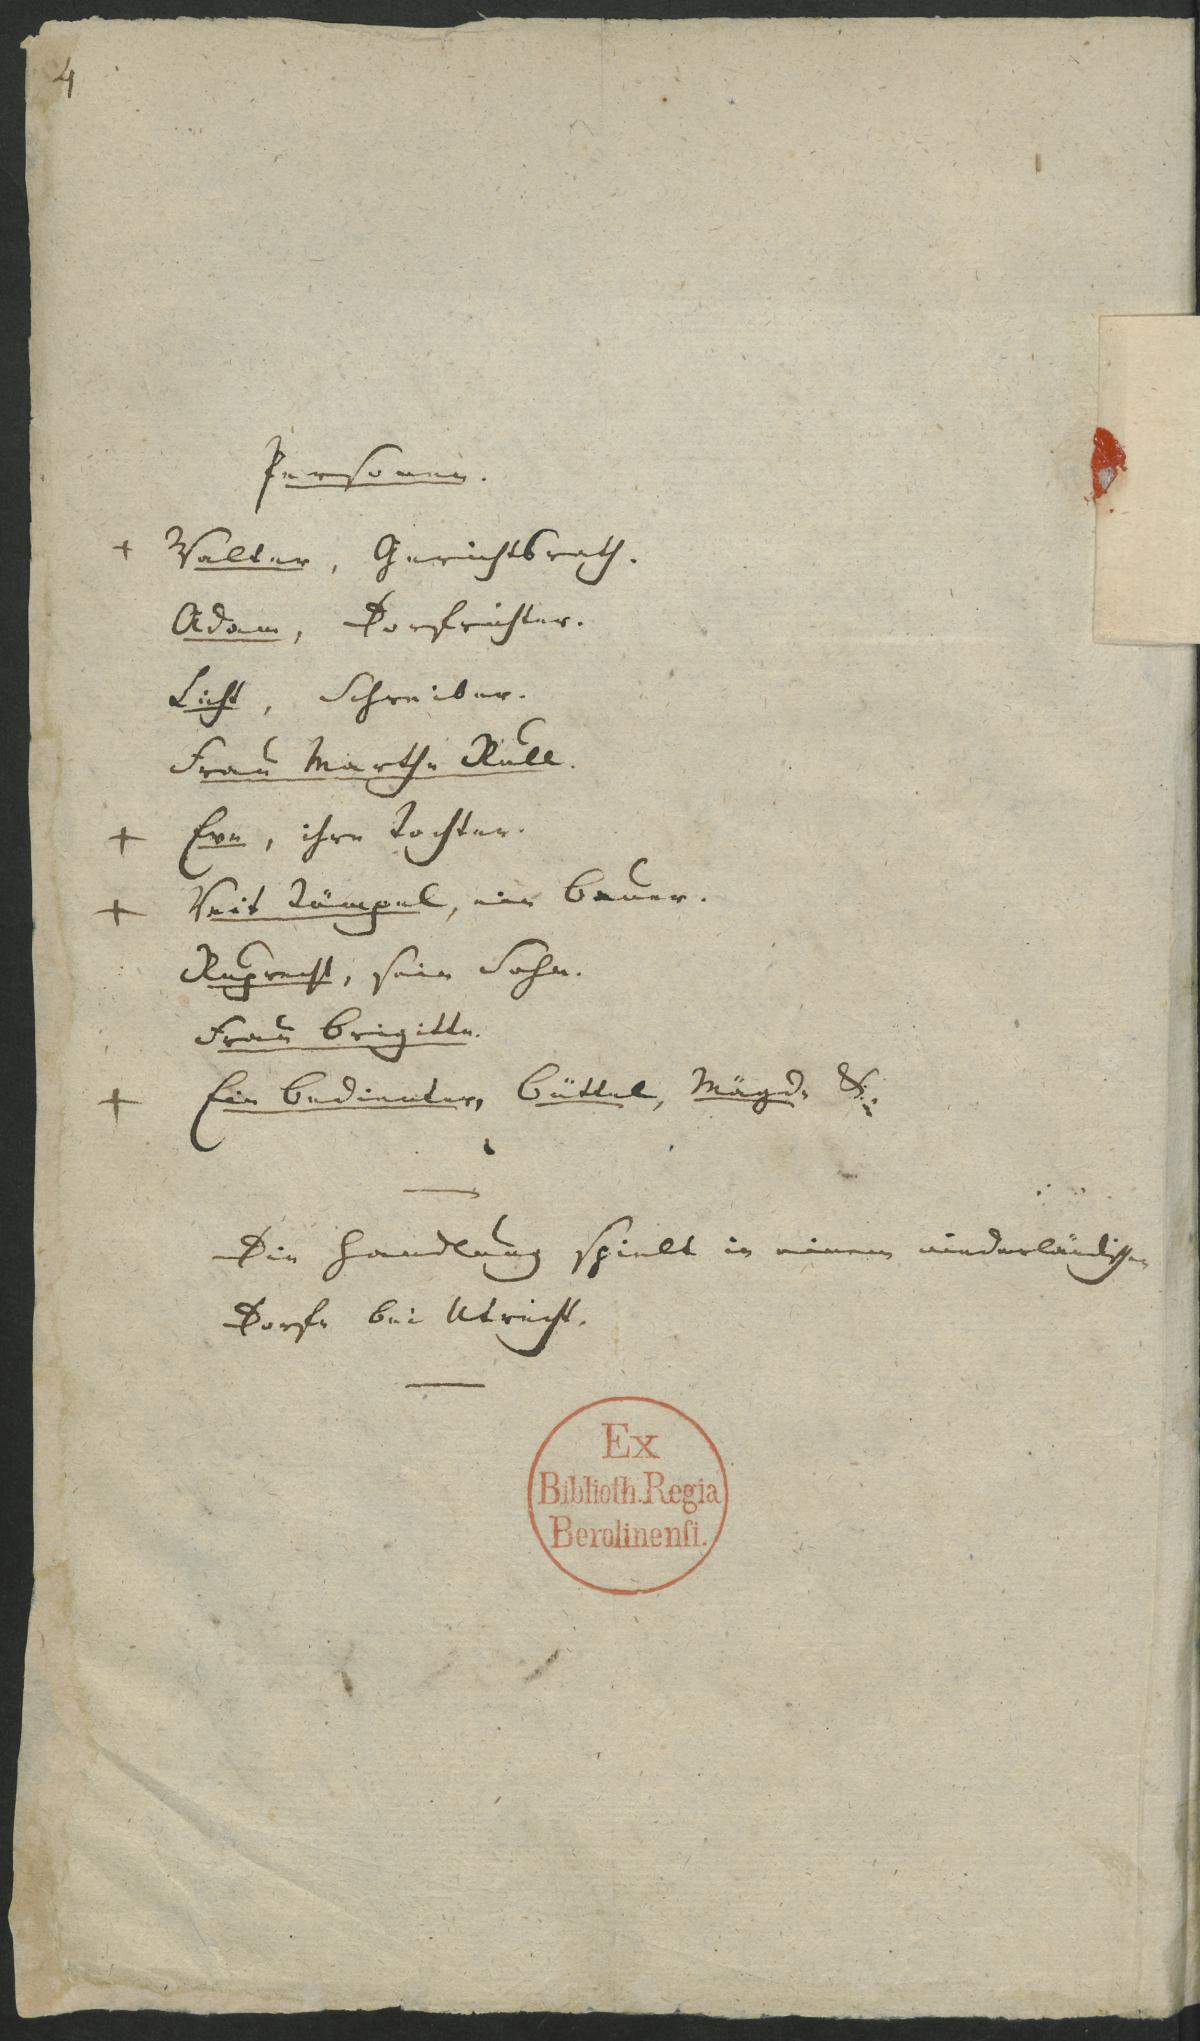 4
Personen.
+ Walter, Gerichtsrath.
Adam, Dorfrichter.
Licht, Schreiber.
Frau Marthe Rull.
+ Eve, ihre Tochter.
+ Veit Tümpel, ein Bauer.
Ruprecht, sein Sohn.
Frau Brigitte.
+ Ein Bedienter, Büttel, Mägde &.
Die Handlung spielt in einem niederländischen
Dorfe bei Utrecht.
Ex
Biblioth. Regia
Berolinenſi.